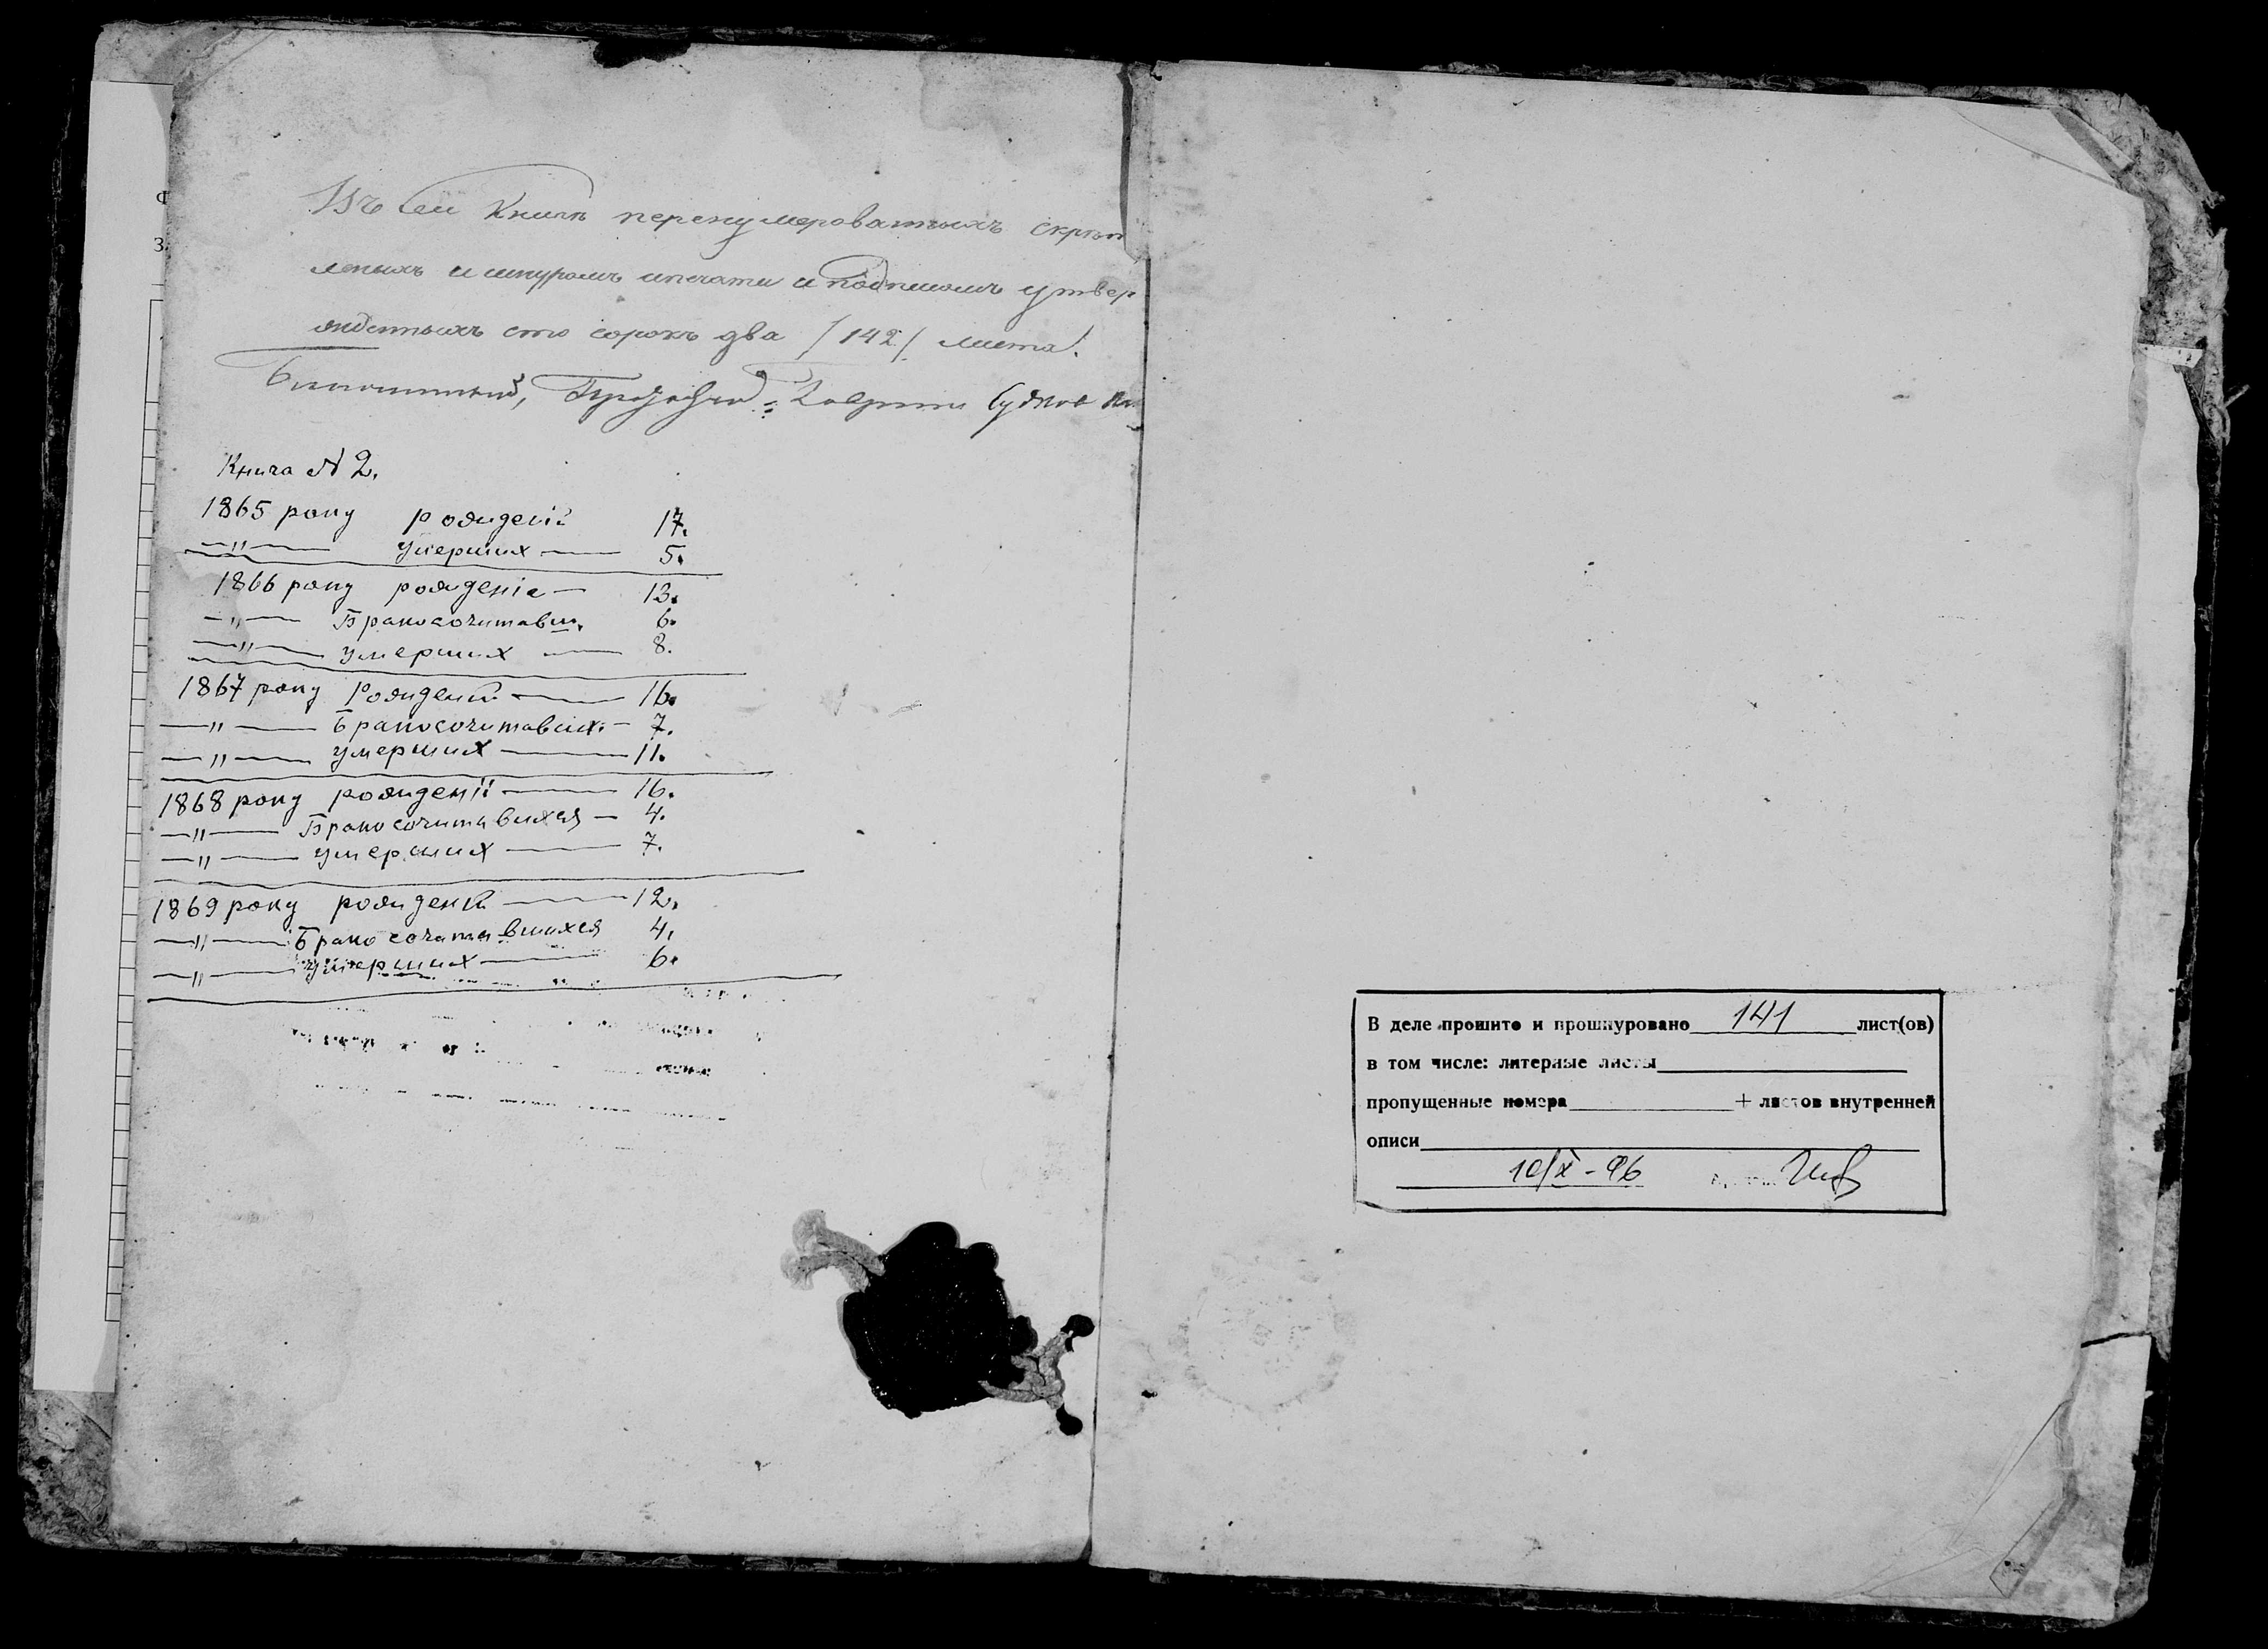 Въ сей Книгѣ перенумерованныхъ скрѣп
леныхъ и шнуромъ и печати и подписомъ утвер
жденныхъ сто сорокъ два /142/ листа.
Книга N 2.
1865 року рожденій 17.
—„— умерших — 5.
1866 року рожденіе — 13.
—„— Бракосочитавш. 6.
—„— умерших — 8.
1867 року Рожденій — 16.
—„— Бракосочитавших. — 7.
—„— умерших — 11.
1868 року рожденій — 16.
—„— Бракосочитавшихся — 4.
—„— умерших — 7.
1869 року рожденій — 12.
—„— Бракосочитавшихся 4.
—„— умерших — 6.
В деле прошито и прошнуровано 141 лист(ов)
в том числе: литерные листы
пропущенные номера + листов внутренней
описи
10/X - 96